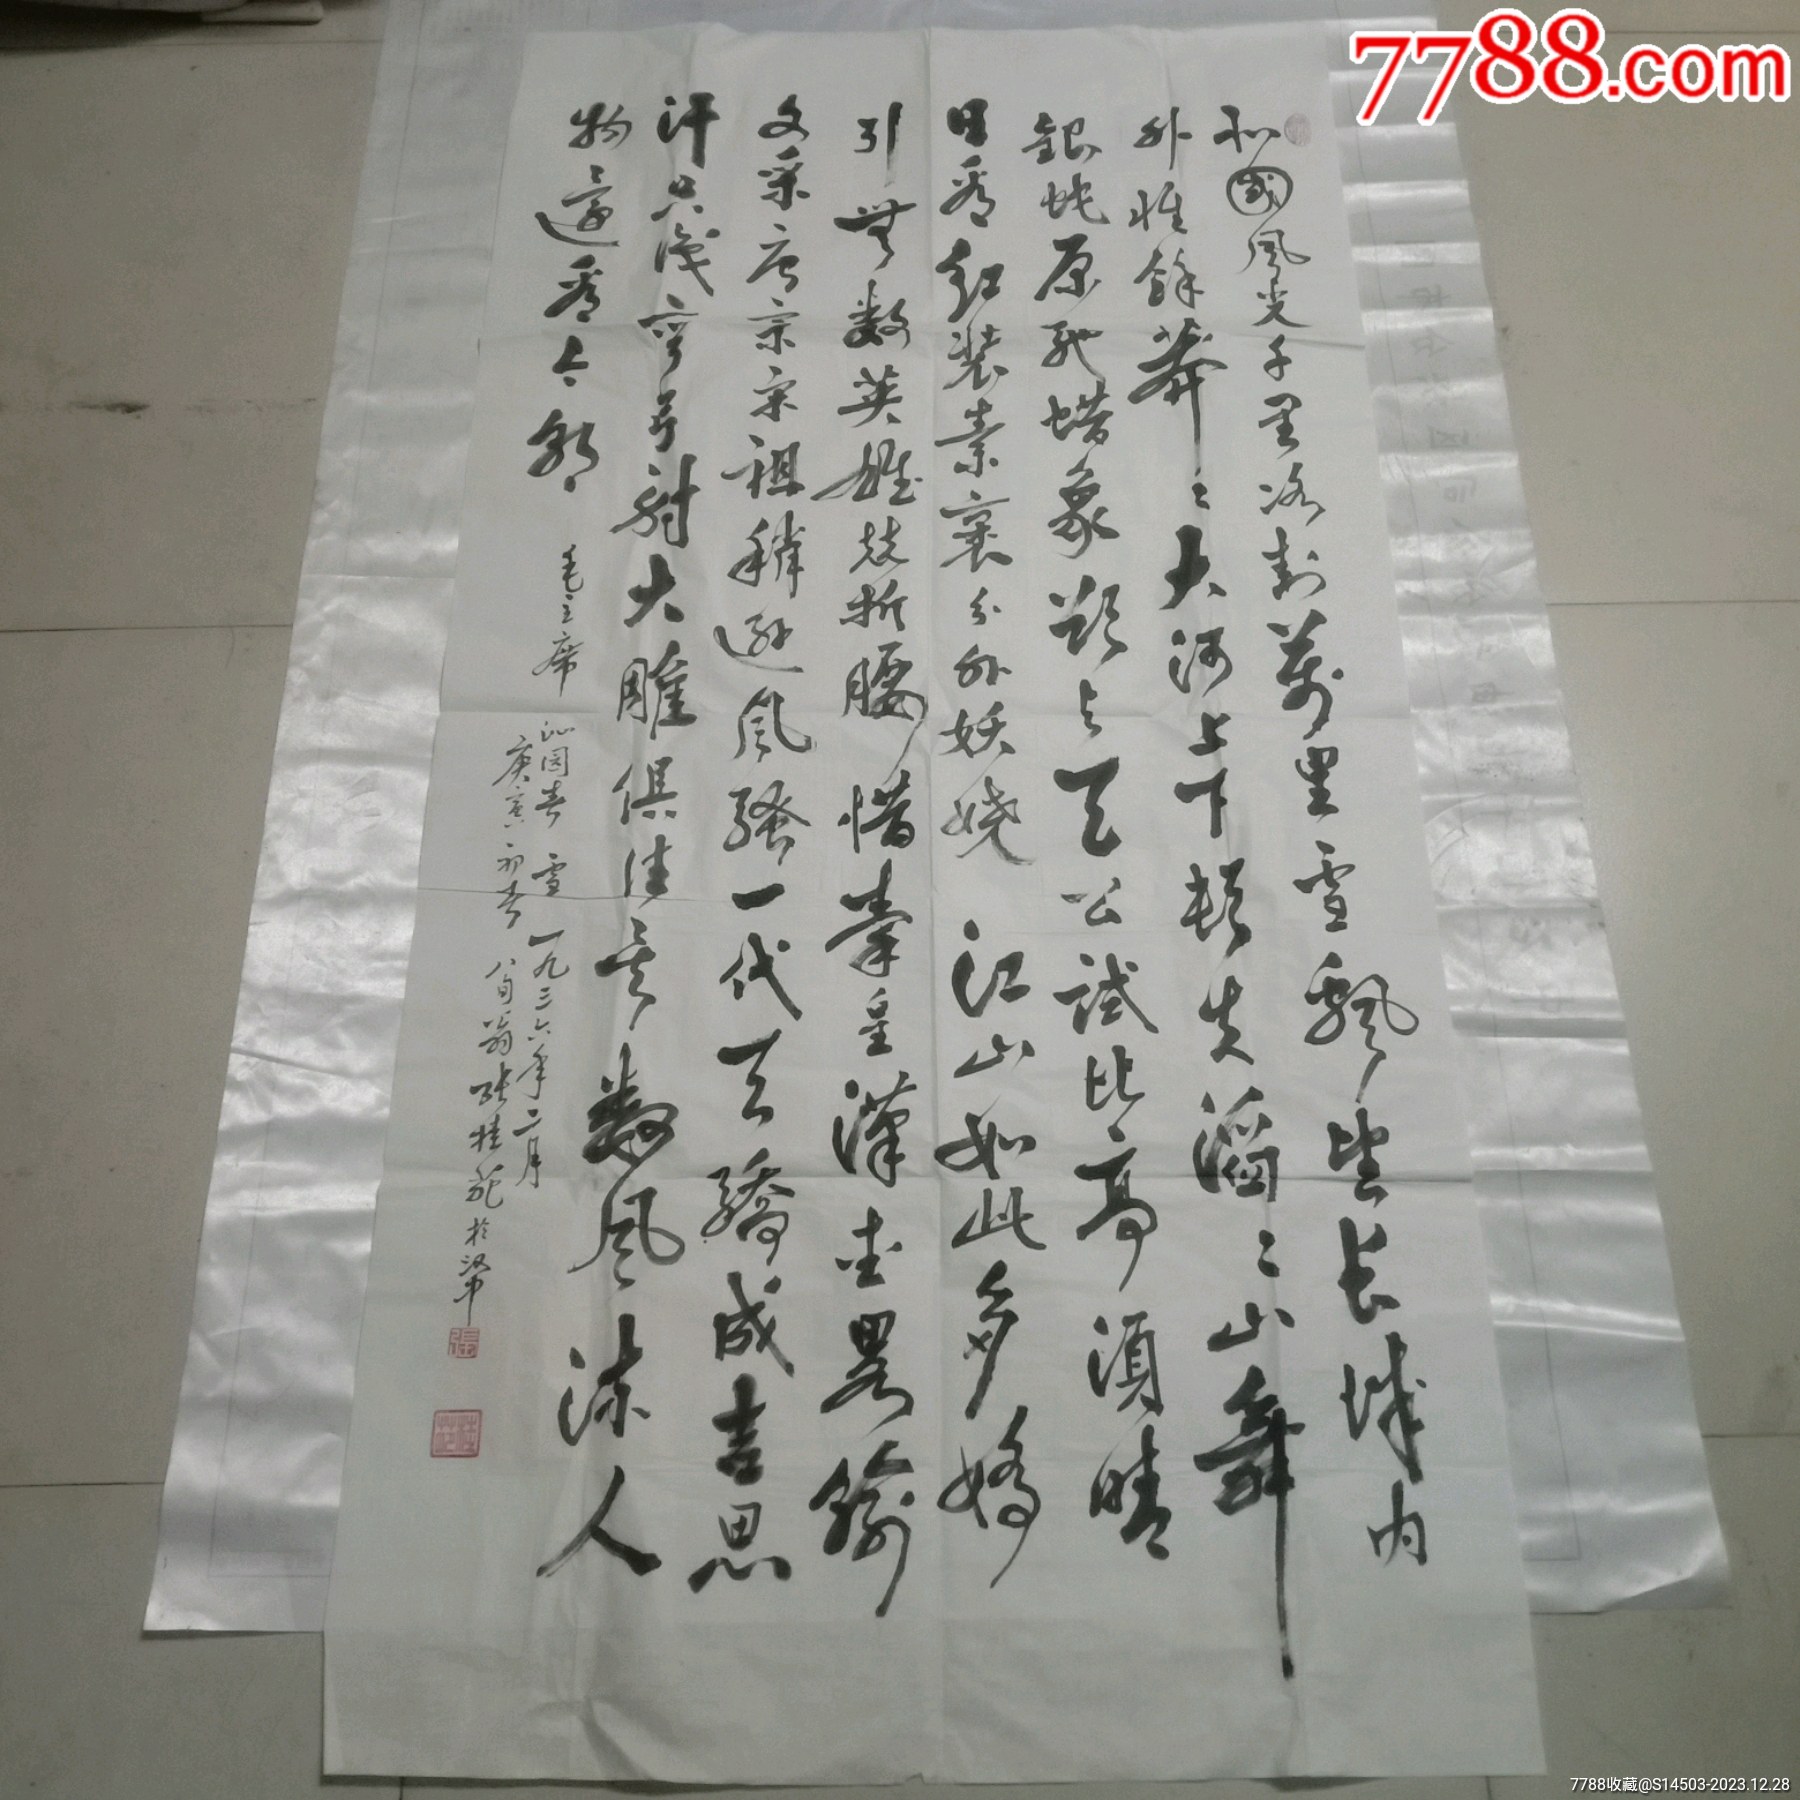 7788.com
北國风光千里冰封萬里雪飘望长城内
外惟餘莽〻大河上下頓失滔〻山舞
銀蛇原驰蜡象欲与天公試比高須晴
日看红装素裹分外妖娆江山如此多娇
引無数英雄竞折腰惜秦皇漢武畧输
文采唐宗宋祖稍逊风骚一代天骄成吉思
汗只识弯弓射大雕俱往矣数风流人
物還看今朝 毛主席
沁园春 雪 一九三六年二月
庚寅初春 八旬翁张桂苑於汉中
7788收藏@S14503-2023.12.28